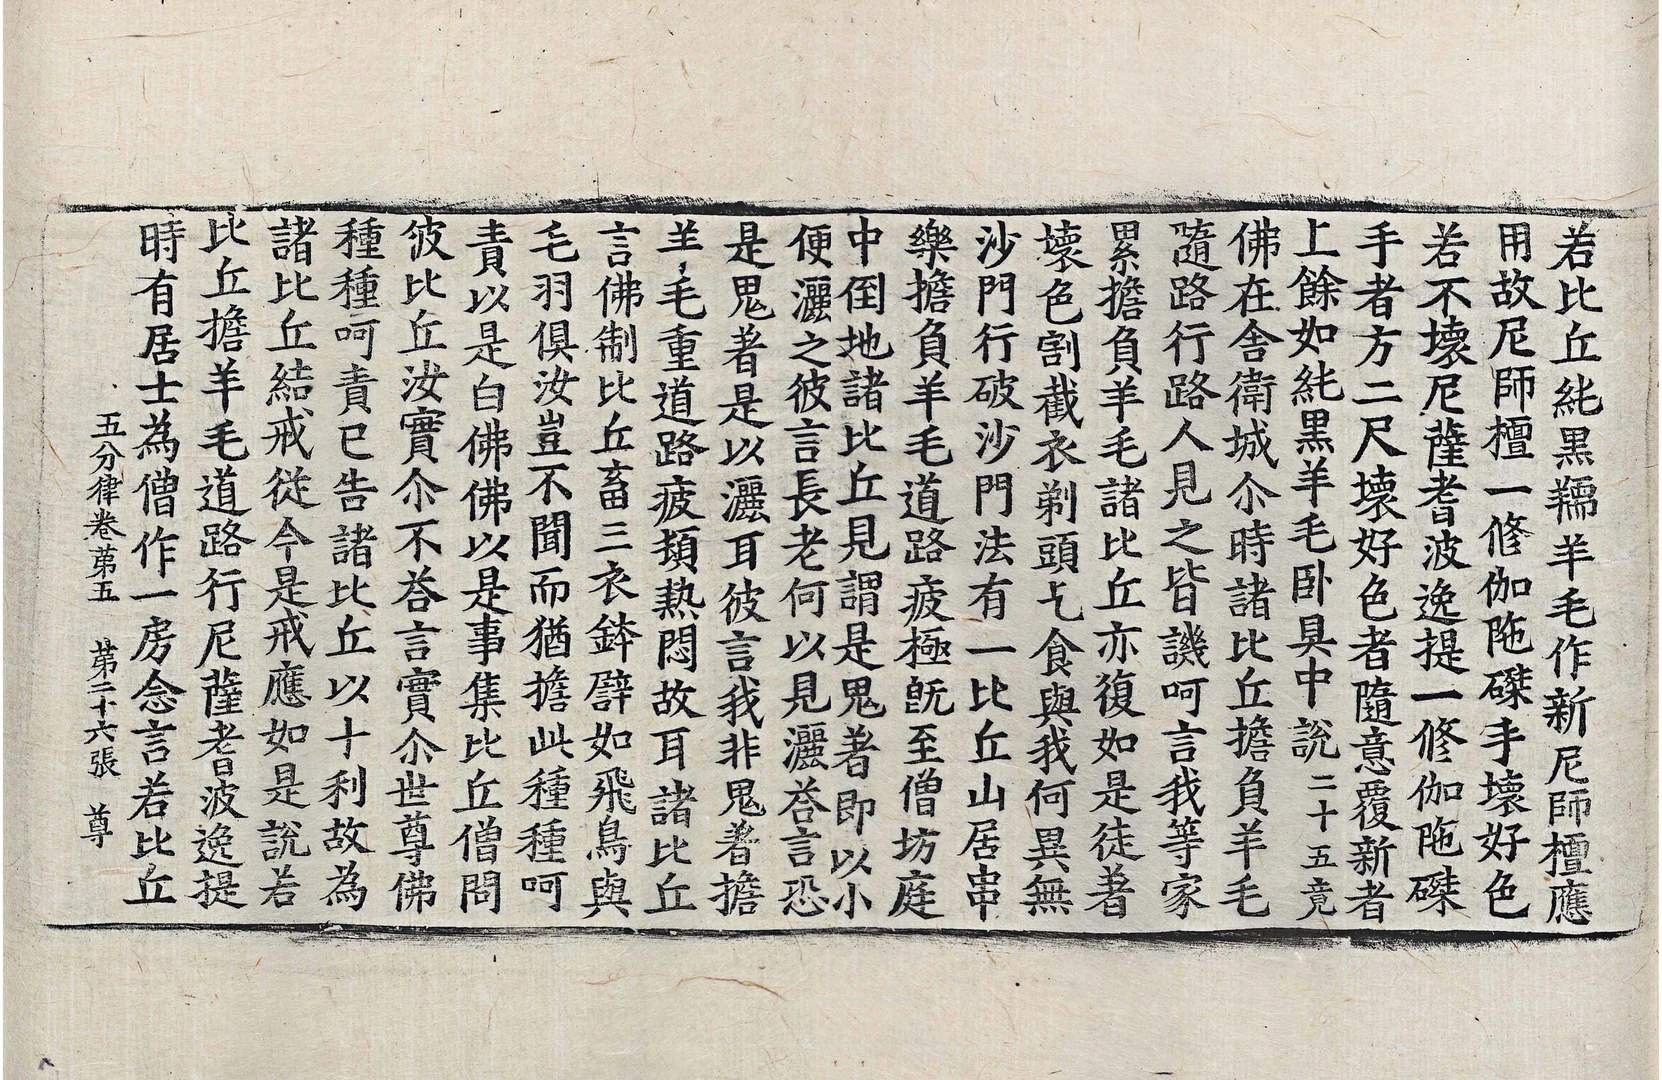 若比丘純黒羺羊毛作新尼師檀應
用故尼師檀一修伽陁磔手壞好色
若不壞尼薩耆波逸提一修伽陁磔
手者方二尺壞好色者隨意覆新者
上餘如純黒羊毛卧具中說二十五竟
佛在舎衛城尒時諸比丘擔負羊毛
隨路行路人見之皆譏呵言我等家
累擔負羊毛諸比丘亦復如是徒著
壞色割截衣剃頭乞食與我何異無
沙門行破沙門法有一比丘山居串
樂擔負羊毛道路疲極旣至僧坊庭
中倒地諸比丘見謂是鬼著即以小
便灑之彼言長老何以見灑荅言恐
是鬼著是以灑耳彼言我非鬼著擔
羊毛重道路疲頓熱悶故耳諸比丘
言佛制比丘畜三衣鉢譬如飛鳥與
毛羽俱汝豈不聞而猶擔此種種呵
責以是白佛佛以是事集比丘僧問
彼比丘汝實尒不荅言實尒世尊佛
種種呵責已告諸比丘以十利故為
諸比丘結戒從今是戒應如是說若
比丘擔羊毛道路行尼薩耆波逸提
時有居士為僧作一房念言若比丘
五分律卷苐五 苐二十六張 尊